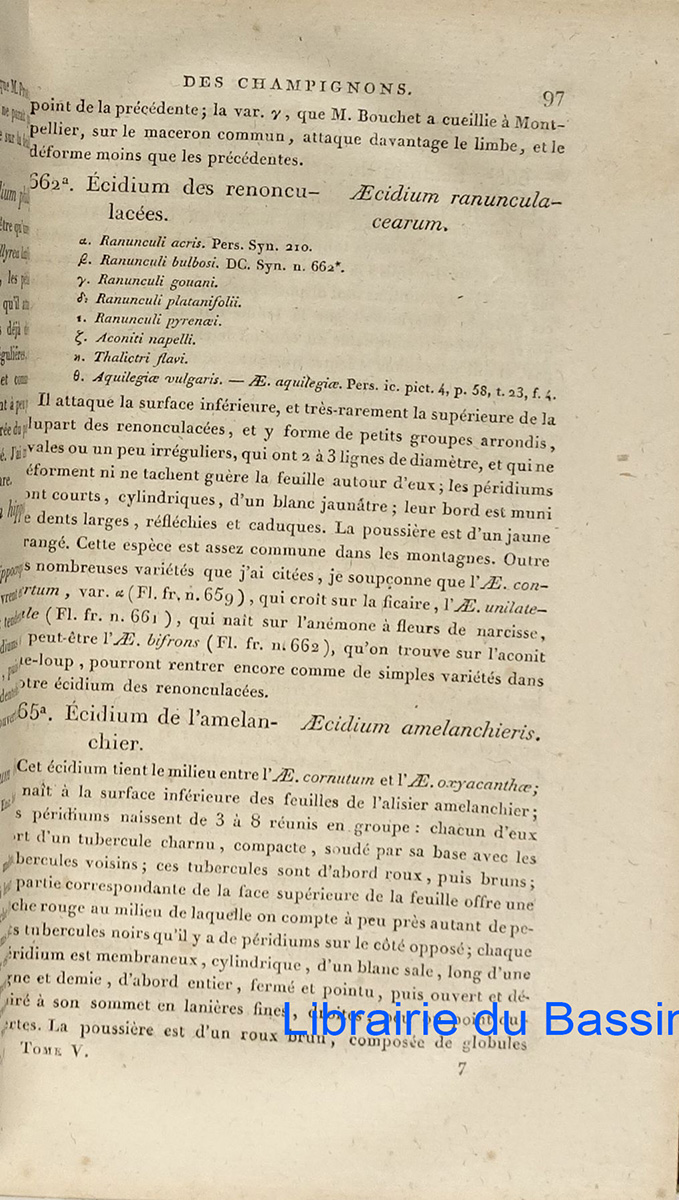 DES CHAMPIGNONS. 97
point de la précédente; la var. γ, que M. Bouchet a cueillie à Mont-
pellier, sur le maceron commun, attaque davantage le limbe, et le
déforme moins que les précédentes.
662ª. Écidium des renoncu- Æcidium ranuncula-
lacées. cearum.
α. Ranunculi acris. Pers. Syn. 210.
β. Ranunculi bulbosi. DC. Syn. n. 662*.
γ. Ranunculi gouani.
δ. Ranunculi platanifolii.
ι. Ranunculi pyrenæi.
ζ. Aconiti napelli.
η. Thalictri flavi.
θ. Aquilegiæ vulgaris. — Æ. aquilegiæ. Pers. ic. pict. 4, p. 58, t. 23, f. 4.
Il attaque la surface inférieure, et très-rarement la supérieure de la
lupart des renonculacées, et y forme de petits groupes arrondis,
vales ou un peu irréguliers, qui ont 2 à 3 lignes de diamètre, et qui ne
éforment ni ne tachent guère la feuille autour d'eux; les péridiums
ont courts, cylindriques, d'un blanc jaunâtre; leur bord est muni
e dents larges, réfléchies et caduques. La poussière est d'un jaune
rangé. Cette espèce est assez commune dans les montagnes. Outre
s nombreuses variétés que j'ai citées, je soupçonne que l'Æ. con-
ertum, var. α (Fl. fr. n. 659), qui croît sur la ficaire, l'Æ. unilate-
le (Fl. fr. n. 661), qui naît sur l'anémone à fleurs de narcisse,
peut-être l'Æ. bifrons (Fl. fr. n. 662), qu'on trouve sur l'aconit
e-loup, pourront rentrer encore comme de simples variétés dans
otre écidium des renonculacées.
65ª. Écidium de l'amelan- Æcidium amelanchieris.
chier.
Cet écidium tient le milieu entre l'Æ. cornutum et l'Æ. oxyacanthæ;
naît à la surface inférieure des feuilles de l'alisier amelanchier;
s péridiums naissent de 3 à 8 réunis en groupe : chacun d'eux
rt d'un tubercule charnu, compacte, soudé par sa base avec les
bercules voisins; ces tubercules sont d'abord roux, puis bruns;
partie correspondante de la face supérieure de la feuille offre une
che rouge au milieu de laquelle on compte à peu près autant de pe-
s tubercules noirs qu'il y a de péridiums sur le côté opposé; chaque
éridium est membraneux, cylindrique, d'un blanc sale, long d'une
gne et demie, d'abord entier, fermé et pointu, puis ouvert et dé-
iré à son sommet en lanières fines, droites,
rtes. La poussière est d'un roux brun, composée de globules
TOME V. 7
Librairie du Bassin